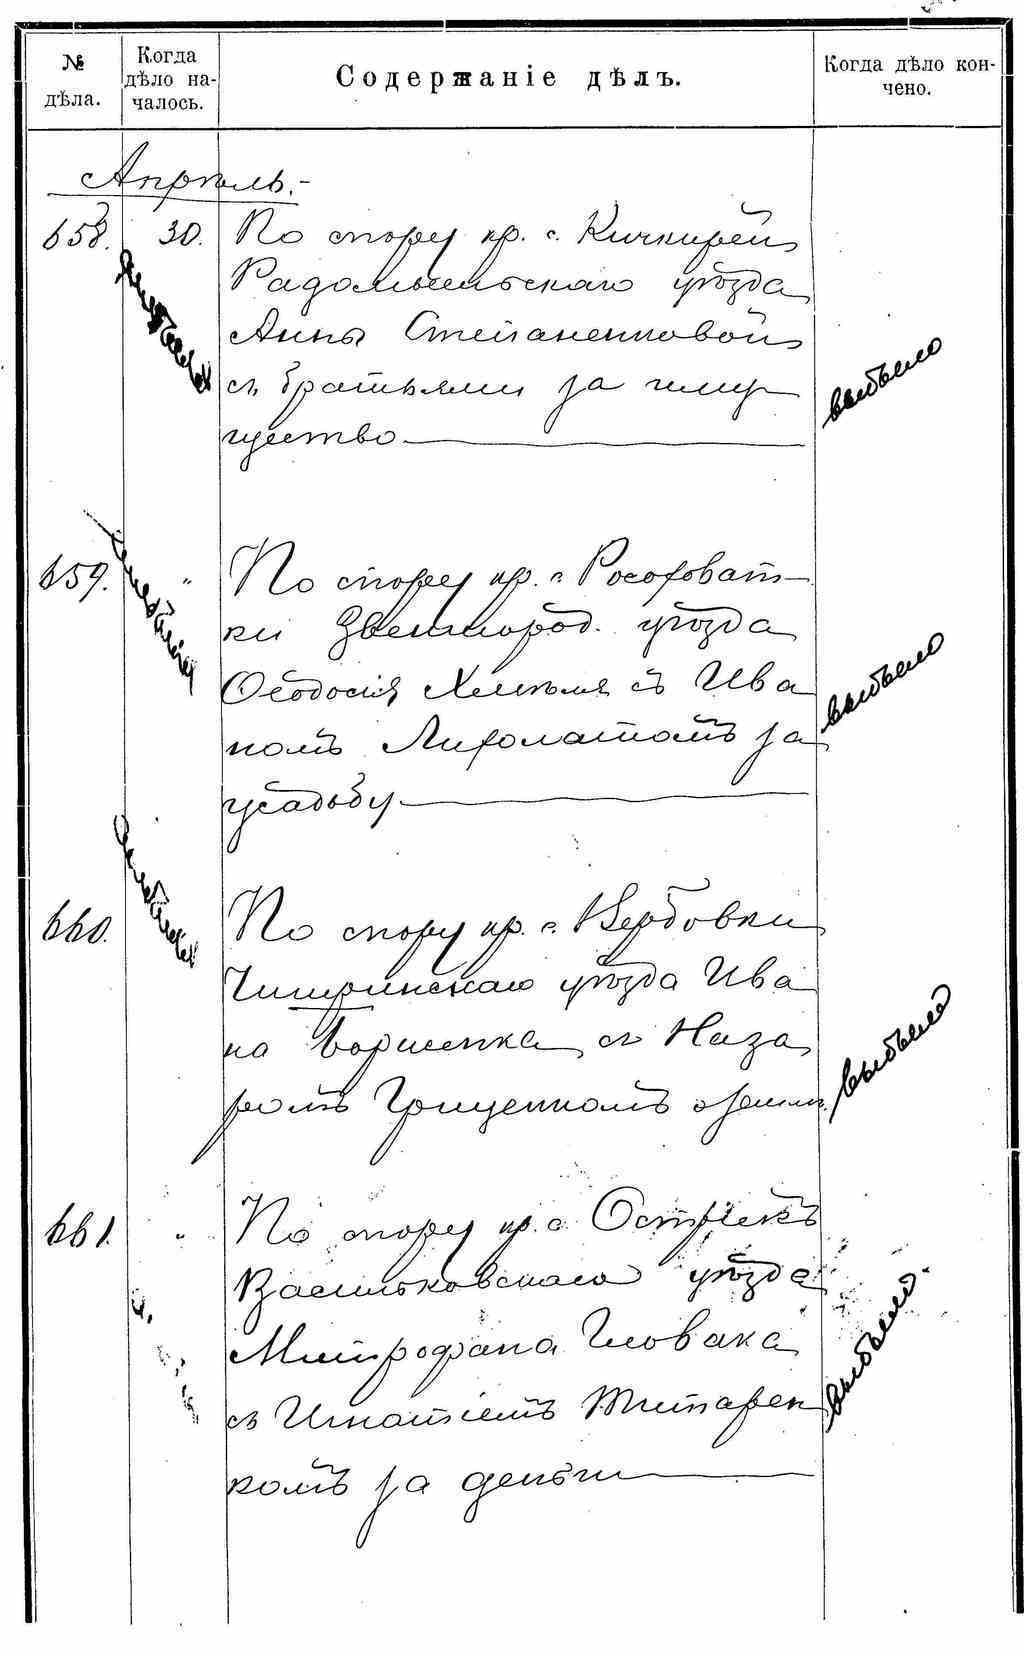 № дѣла.
Когда дѣло началось.
Содержаніе дѣлъ.
Когда дѣло кончено.
Апрѣль.-
658. 30. По спору кр. с. Кичкирей
Радомысльскаго уѣзда
Анны Степаненковой
съ братьями за иму-
щество
выбыло
659. " По спору кр. с. Рософоват-
ки Звенигород. уѣзда
Ѳеодосія Хмѣля съ Ива
номъ Лихолатомъ за
усадьбу
выбыло
660. По спору кр. с. Вербовки
Чигиринскаго уѣзда Ива
на Борисенка съ Наза
ромъ Грищенкомъ о земли.
выбыло
661. " По спору кр. с. Острiекъ
Васильковскаго уѣзда
Митрофана Гловака
съ Игнатіемъ Титарен
комъ за деньги
выбыло.